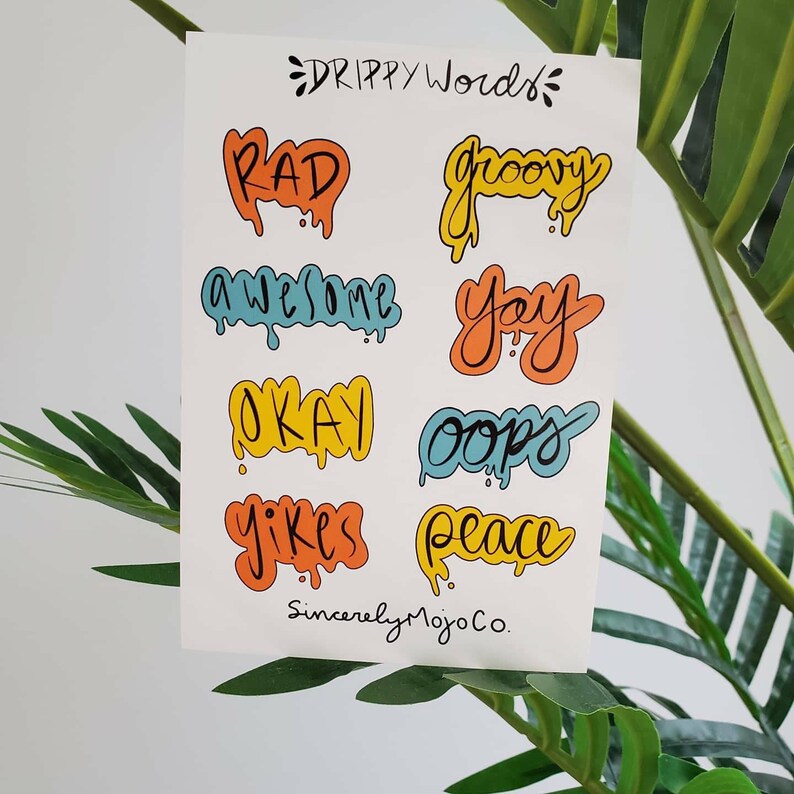 DRIPPY Words
RAD
groovy
awesome
yay
OKAY
oops
yikes
peace
SincerelyMojoCo.